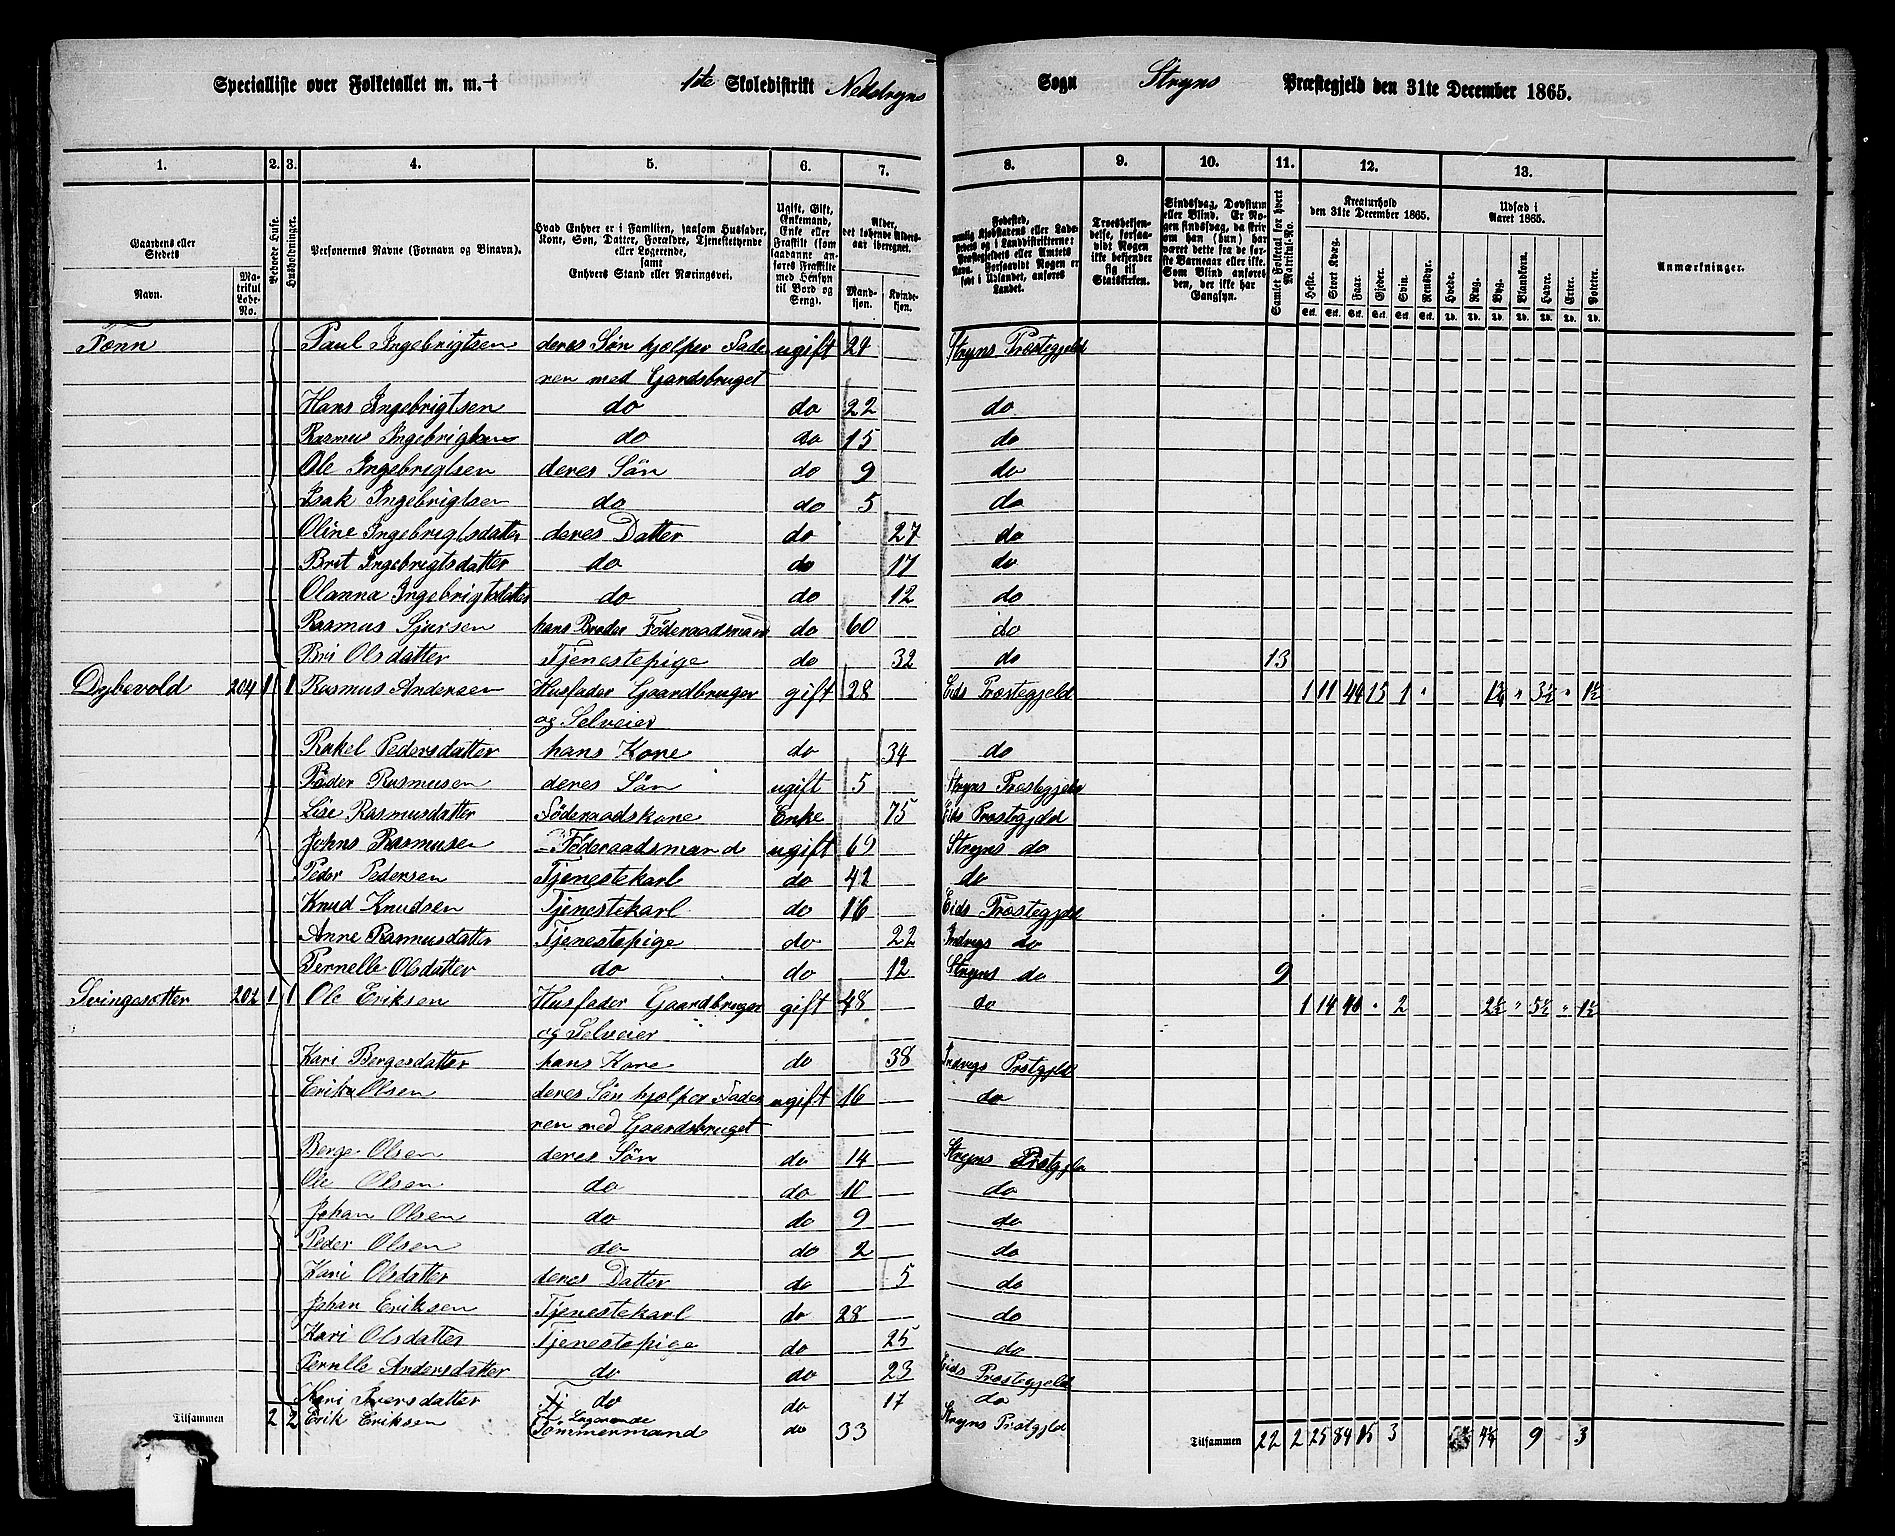 Specialliste over Folketallet m. m. i 1te Skoledistrikt Nedstryns Sogn Stryns Præstegjeld den 31te December 1865.
1. 2. 3. 4. 5. 6. 7. 8. 9. 10. 11. 12. 13.
Gaardens eller Stedets Navn. Matrikul Løbe-No. Beboede Huse. Husholdninger. Personernes Navne (Fornavn og Binavn). Hvad Enhver er i Familien, saasom Husfader, Kone, Søn, Datter, Forældre, Tjenestetyende eller Logerende, samt Enhvers Stand eller Næringsvei. Ugift, Gift, Enkemand, Enke eller Fraskilt (som saadanne anføres Fraskilte med Hensyn til Bord og Seng). Alder, det løbende Alders-aar iberegnet. Mandkjøn. Kvindekjøn.
Fødested, Troesbekjendelse, forsaavidt Nogen ikke bekjender sig til Statskirken. Sindssvag, Døvstum eller Blind. Samlet Folketal for hvert Matrikul-No. Kreaturhold den 31te December 1865. Heste. Stort Kvæg. Faar. Gjeder. Svin. Rensdyr. Udsæd i Aaret 1865. Hvede. Rug. Byg. Blandkorn. Havre. Erter. Poteter. Anmærkninger.
Tænn Paul Ingebrigtsen deres Søn hjælper Fade ugift 24 Stryns Præstegjeld
ren med Gardsbruget
Hans Ingebrigtsen do do 22 do
Rasmus Ingebrigtsen do do 15 do
Ole Ingebrigtsen deres Søn do 9 do
Isak Ingebrigtsen do do 5 do
Oline Ingebrigtsdatter deres Datter do 27 do
Brit Ingebrigtsdatter do do 17 do
Olanna Ingebrigtsdatter do do 12 do
Rasmus Sjursen hans Broder Föderaadsmand do 60 do
Bri Olsdatter Tjenestepige do 32 do 13
Dybevold 204 1 1 Rasmus Andersen Husfader Gaardbruger gift 28 Eids Præstegjeld 1 11 44 15 1 " 1¼ " 3½ " 1½
og Selveier
Rakel Pedersdatter hans Kone do 34 do
Päder Rasmusen deres Sån ugift 5 Stryns Præstegjeld
Lise Rasmusdatter Föderaadskone Enke 75 Eids Præstegjeld
Johns Rasmusen Föderaadsmand ugift 69 Stryns do
Peder Pedersen Tjenestekarl do 42 do
Knud Knudsen Tjenestekarl do 16 Eids Præstegjeld
Anne Rasmusdatter Tjenestepige do 22 Indvigs do
Pernelle Olsdatter do do 12 Stryns do 9
Svingesætter 202 1 1 Ole Eriksen Husfader Gaardbruger gift 48 do 1 14 40 " 2 2½ " 5½ " 1½
og Selveier
Kari Bergesdatter hans Kone do 38 Indvigs Præstgjeld
Erik Olsen deres Sån hjælper Fade ugift 16 do
ren med Gaardsbruget
Berge Olsen deres Søn do 14 Stryns Præstgjeld
Ole Olsen do do 10 do
Johan Olsen do do 9 do
Peder Olsen do do 2 do
Kari Olsdatter deres Datter do 5 do
Johan Eriksen Tjenestekarl do 28 do
Kari Olsdatter Tjenestepige do 25 do
Pernille Andersdatter do do 23 Eids Præstegjeld
Kari Iversdatter Tj do do 17 do
Tilsammen 2 2 Erik Eriksen Logerende Tømmermand do 33 Stryns Præstgjeld
Tilsammen 22 2 25 84 15 3 9 3